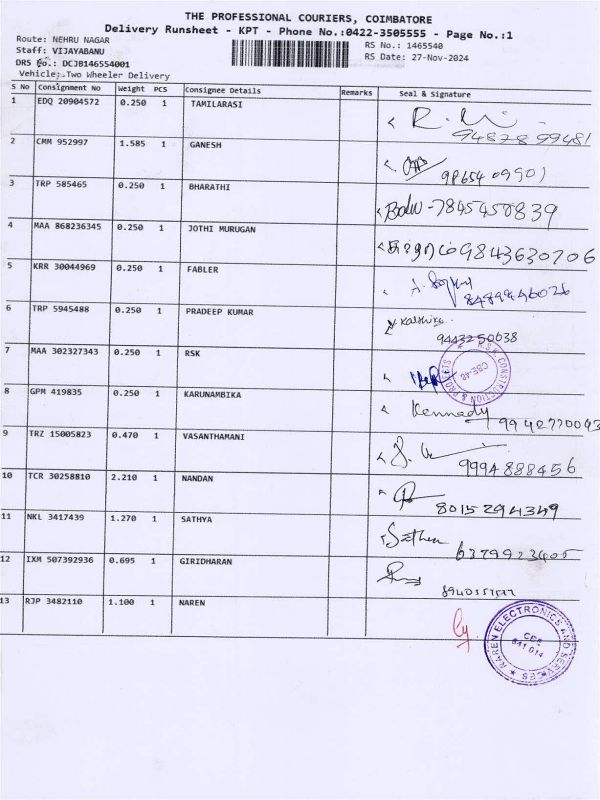 THE PROFESSIONAL COURIERS, COIMBATORE
Delivery Runsheet - KPT - Phone No.:0422-3505555 - Page No.:1
Route: NEHRU NAGAR
RS No.: 1465540
Staff: VIJAYABANU
RS Date: 27-Nov-2024
DRS No.: DCJB146554001
Vehicle: Two Wheeler Delivery
S No Consignment No Weight PCS Consignee Details Remarks Seal & Signature
1 EDQ 20904572 0.250 1 TAMILARASI
94878 99481
2 CMM 952997 1.585 1 GANESH
98654 09901
3 TRP 585465 0.250 1 BHARATHI
7845458839
4 MAA 868236345 0.250 1 JOTHI MURUGAN
9843630706
5 KRR 30044969 0.250 1 FABLER
6 TRP 5945488 0.250 1 PRADEEP KUMAR
9443250038
7 MAA 302327343 0.250 1 RSK
R.S.K CONSTRUCTION & PROJECTS CBE-48
8 GPM 419835 0.250 1 KARUNAMBIKA
Kennedy 9942770043
9 TRZ 15005823 0.470 1 VASANTHAMANI
9994888456
10 TCR 30258810 2.210 1 NANDAN
8015294349
11 NKL 3417439 1.270 1 SATHYA
6379923405
12 IXM 507392936 0.695 1 GIRIDHARAN
13 RJP 3482110 1.100 1 NAREN
NAREN ELECTRONICS AND SERVICES
641 014